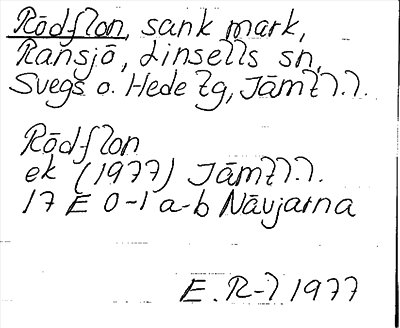 Rödflon, sank mark,
Ransjö, Linsells sn,
Svegs o. Hede tg, Jämtl.l.
Rödflon
ek (1977) Jämtl.l.
17 E 0-1 a-b Nävjarna
E. R-l 1977